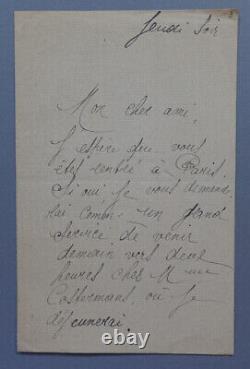 Jeudi soir
Mon cher ami,
J'espère que vous
êtes rentré à Paris.
Si oui, je vous demande
rai comme un grand
service de venir
demain vers deux
heures chez Mme
Costermans, où je
déjeunerai.
© ebay